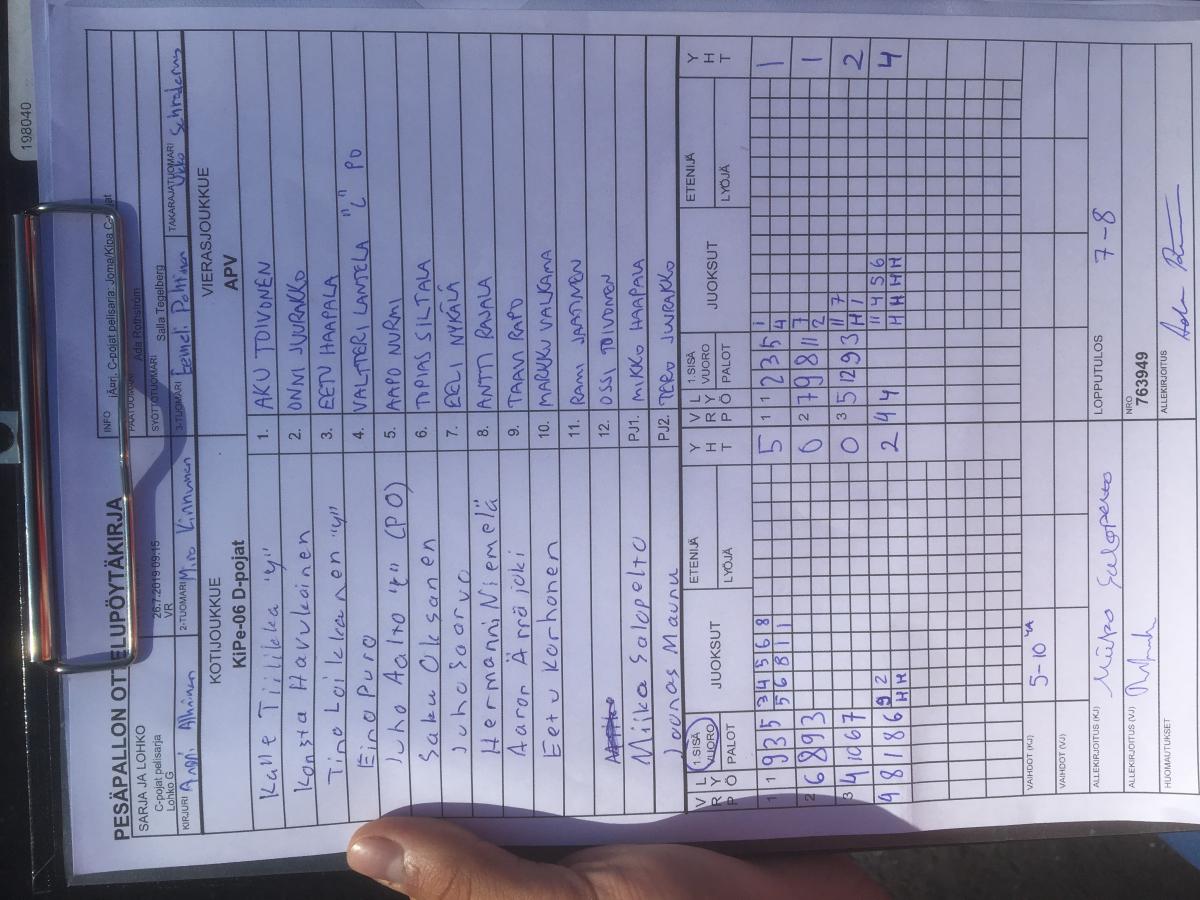 198040
PESÄPALLON OTTELUPÖYTÄKIRJA
INFO
jÄprj. C-pojat pelisarja: Joma/Kipa C-pojat
SARJA JA LOHKO
C-pojat pelisarja
Lohko G
26.7.2019 09:15
VR
Ada Rothström
SYÖTTÖTUOMARI
Salla Tegelberg
KIRJURI
2-TUOMARI Miro Kinnunen
3-TUOMARI Eemeli
TAKARAJATUOMARI
KOTIJOUKKUE
KiPe-06 D-pojat
VIERASJOUKKUE
APV
Kalle Tiilikka "y" 1. AKU TOIVONEN
Konsta Havukainen 2. ONNI JUURAKKO
Tino Loikkanen "y" 3. EETU HAAPALA
Eino Puro 4. VALTTERI LANTELA "L" PO
Juho Aalto (PO) 5. AAPO NURMI
Saku Oksanen 6. TOPIAS SILTALA
Juho Saarvo 7. EELI NYKÄLÄ
Hermanni Niemelä 8. ANTTI RAJALA
Aaron Ärräjoki 9. TAAVI RAPO
Eetu Korhonen 10. MARKKU VALKAMA
11. RAMI JAATINEN
12. OSSI TOIVONEN
Miika Salopelto PJ1. MIKKO HAAPALA
Joonas Maunu PJ2. TERO JUURAKKO
V R P L Y Ö 1.SISÄ VUORO PALOT JUOKSUT ETENIJÄ LYÖJÄ Y H T
V R P L Y Ö 1.SISÄ VUORO PALOT JUOKSUT ETENIJÄ LYÖJÄ Y H T
1 1 9 3 5 3 4 5 6 8 5 1 1 2 3 5 1 1
5 6 8 1 1 4
2 6 8 9 3 0 2 7 9 8 11 7 1
2
3 4 10 6 7 0 3 5 12 9 3 11 7 2
H 1
9 8 1 8 6 9 2 2 4 4 11 4 5 6 4
H H H H H H
VAIHDOT (KJ) 5-10
VAIHDOT (VJ)
ALLEKIRJOITUS (KJ) Miika Salopelto
LOPPUTULOS 7-8
ALLEKIRJOITUS (VJ)
NRO
763949
HUOMAUTUKSET
ALLEKIRJOITUS